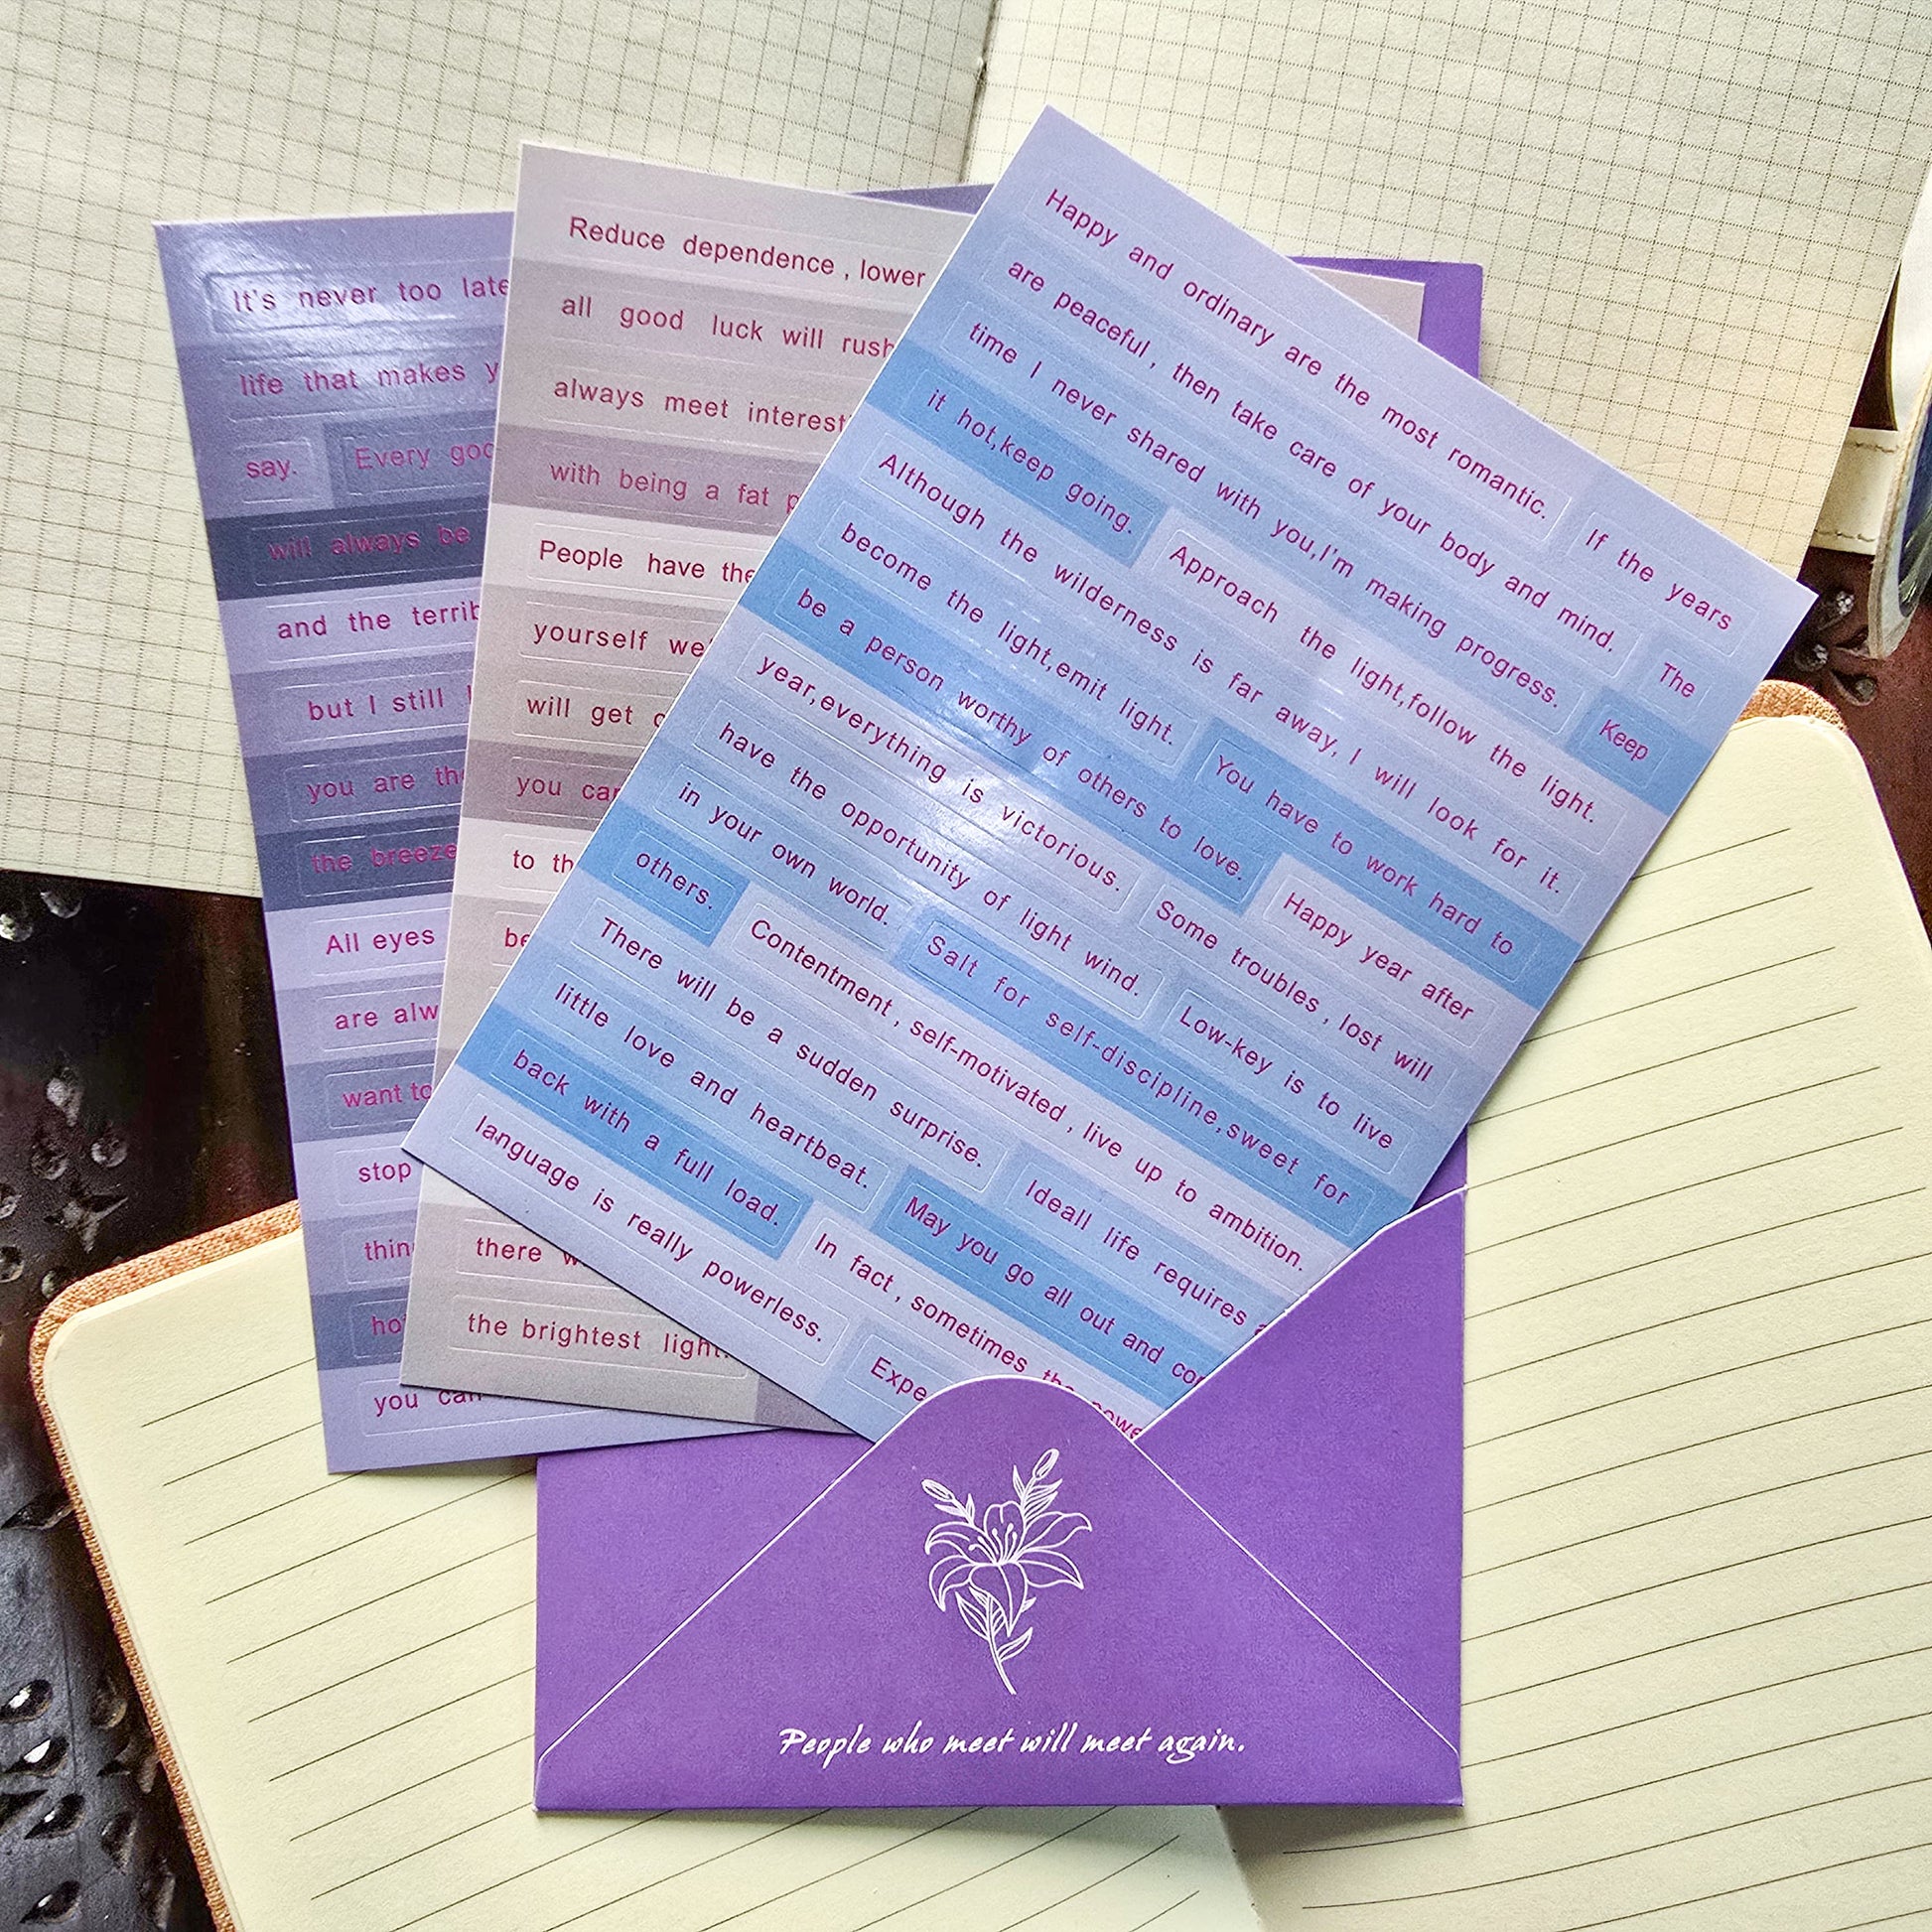 It's never too late
life that makes
say. Every
will always be
and the
but I still
you are
the breeze
All eyes
are
want to
stop
you can
Reduce dependence , lower
all good luck will rush
always meet
with being a fat
People have
yourself
will get
you
to
there
the brightest light.
Happy and ordinary are the most romantic. If the years
are peaceful , then take care of your body and mind. The
time I never shared with you,I'm making progress. Keep
it hot,keep going. Approach the light,follow the light.
Although the wilderness is far away, I will look for it.
become the light,emit light. You have to work hard to
be a person worthy of others to love. Happy year after
year,everything is victorious. Some troubles , lost will
have the opportunity of light wind. Low-key is to live
in your own world. Salt for self-discipline,sweet for
others. Contentment , self-motivated , live up to ambition.
There will be a sudden surprise. Ideall life requires
little love and heartbeat. May you go all out and
back with a full load. In fact , sometimes
language is really powerless.
People who meet will meet again.